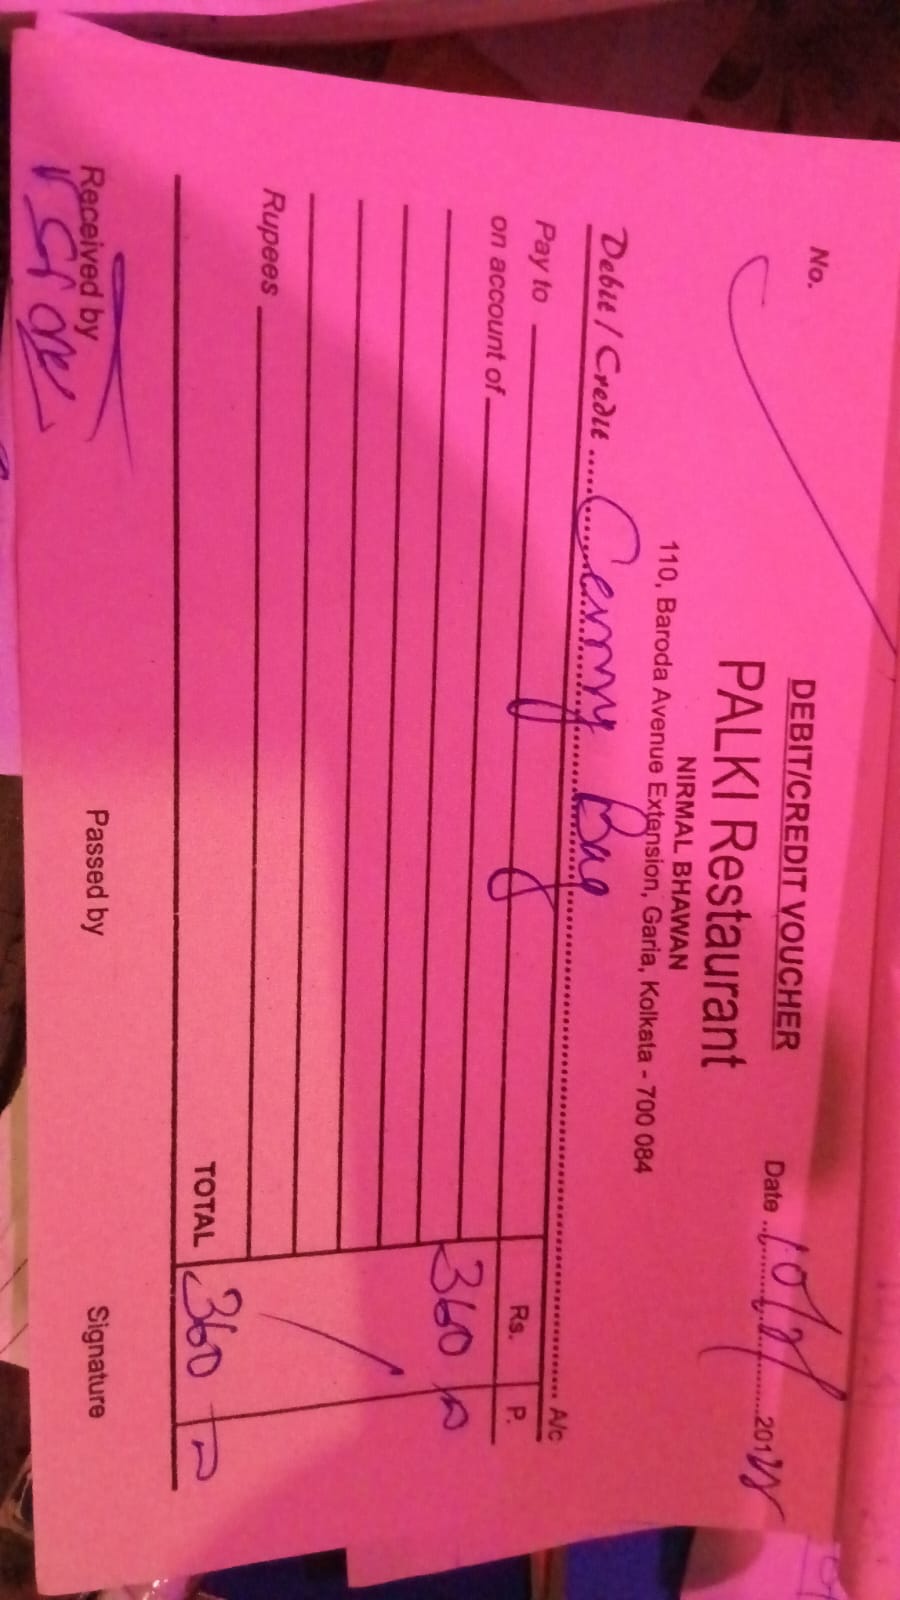 DEBIT/CREDIT VOUCHER
No.
PALKI Restaurant
Date
201
NIRMAL BHAWAN
110, Baroda Avenue Extension, Garia, Kolkata - 700 084
Debit / Credit Carry Bag A/c
Pay to Rs. P.
on account of
360
Rupees
TOTAL 360
Received by Passed by Signature